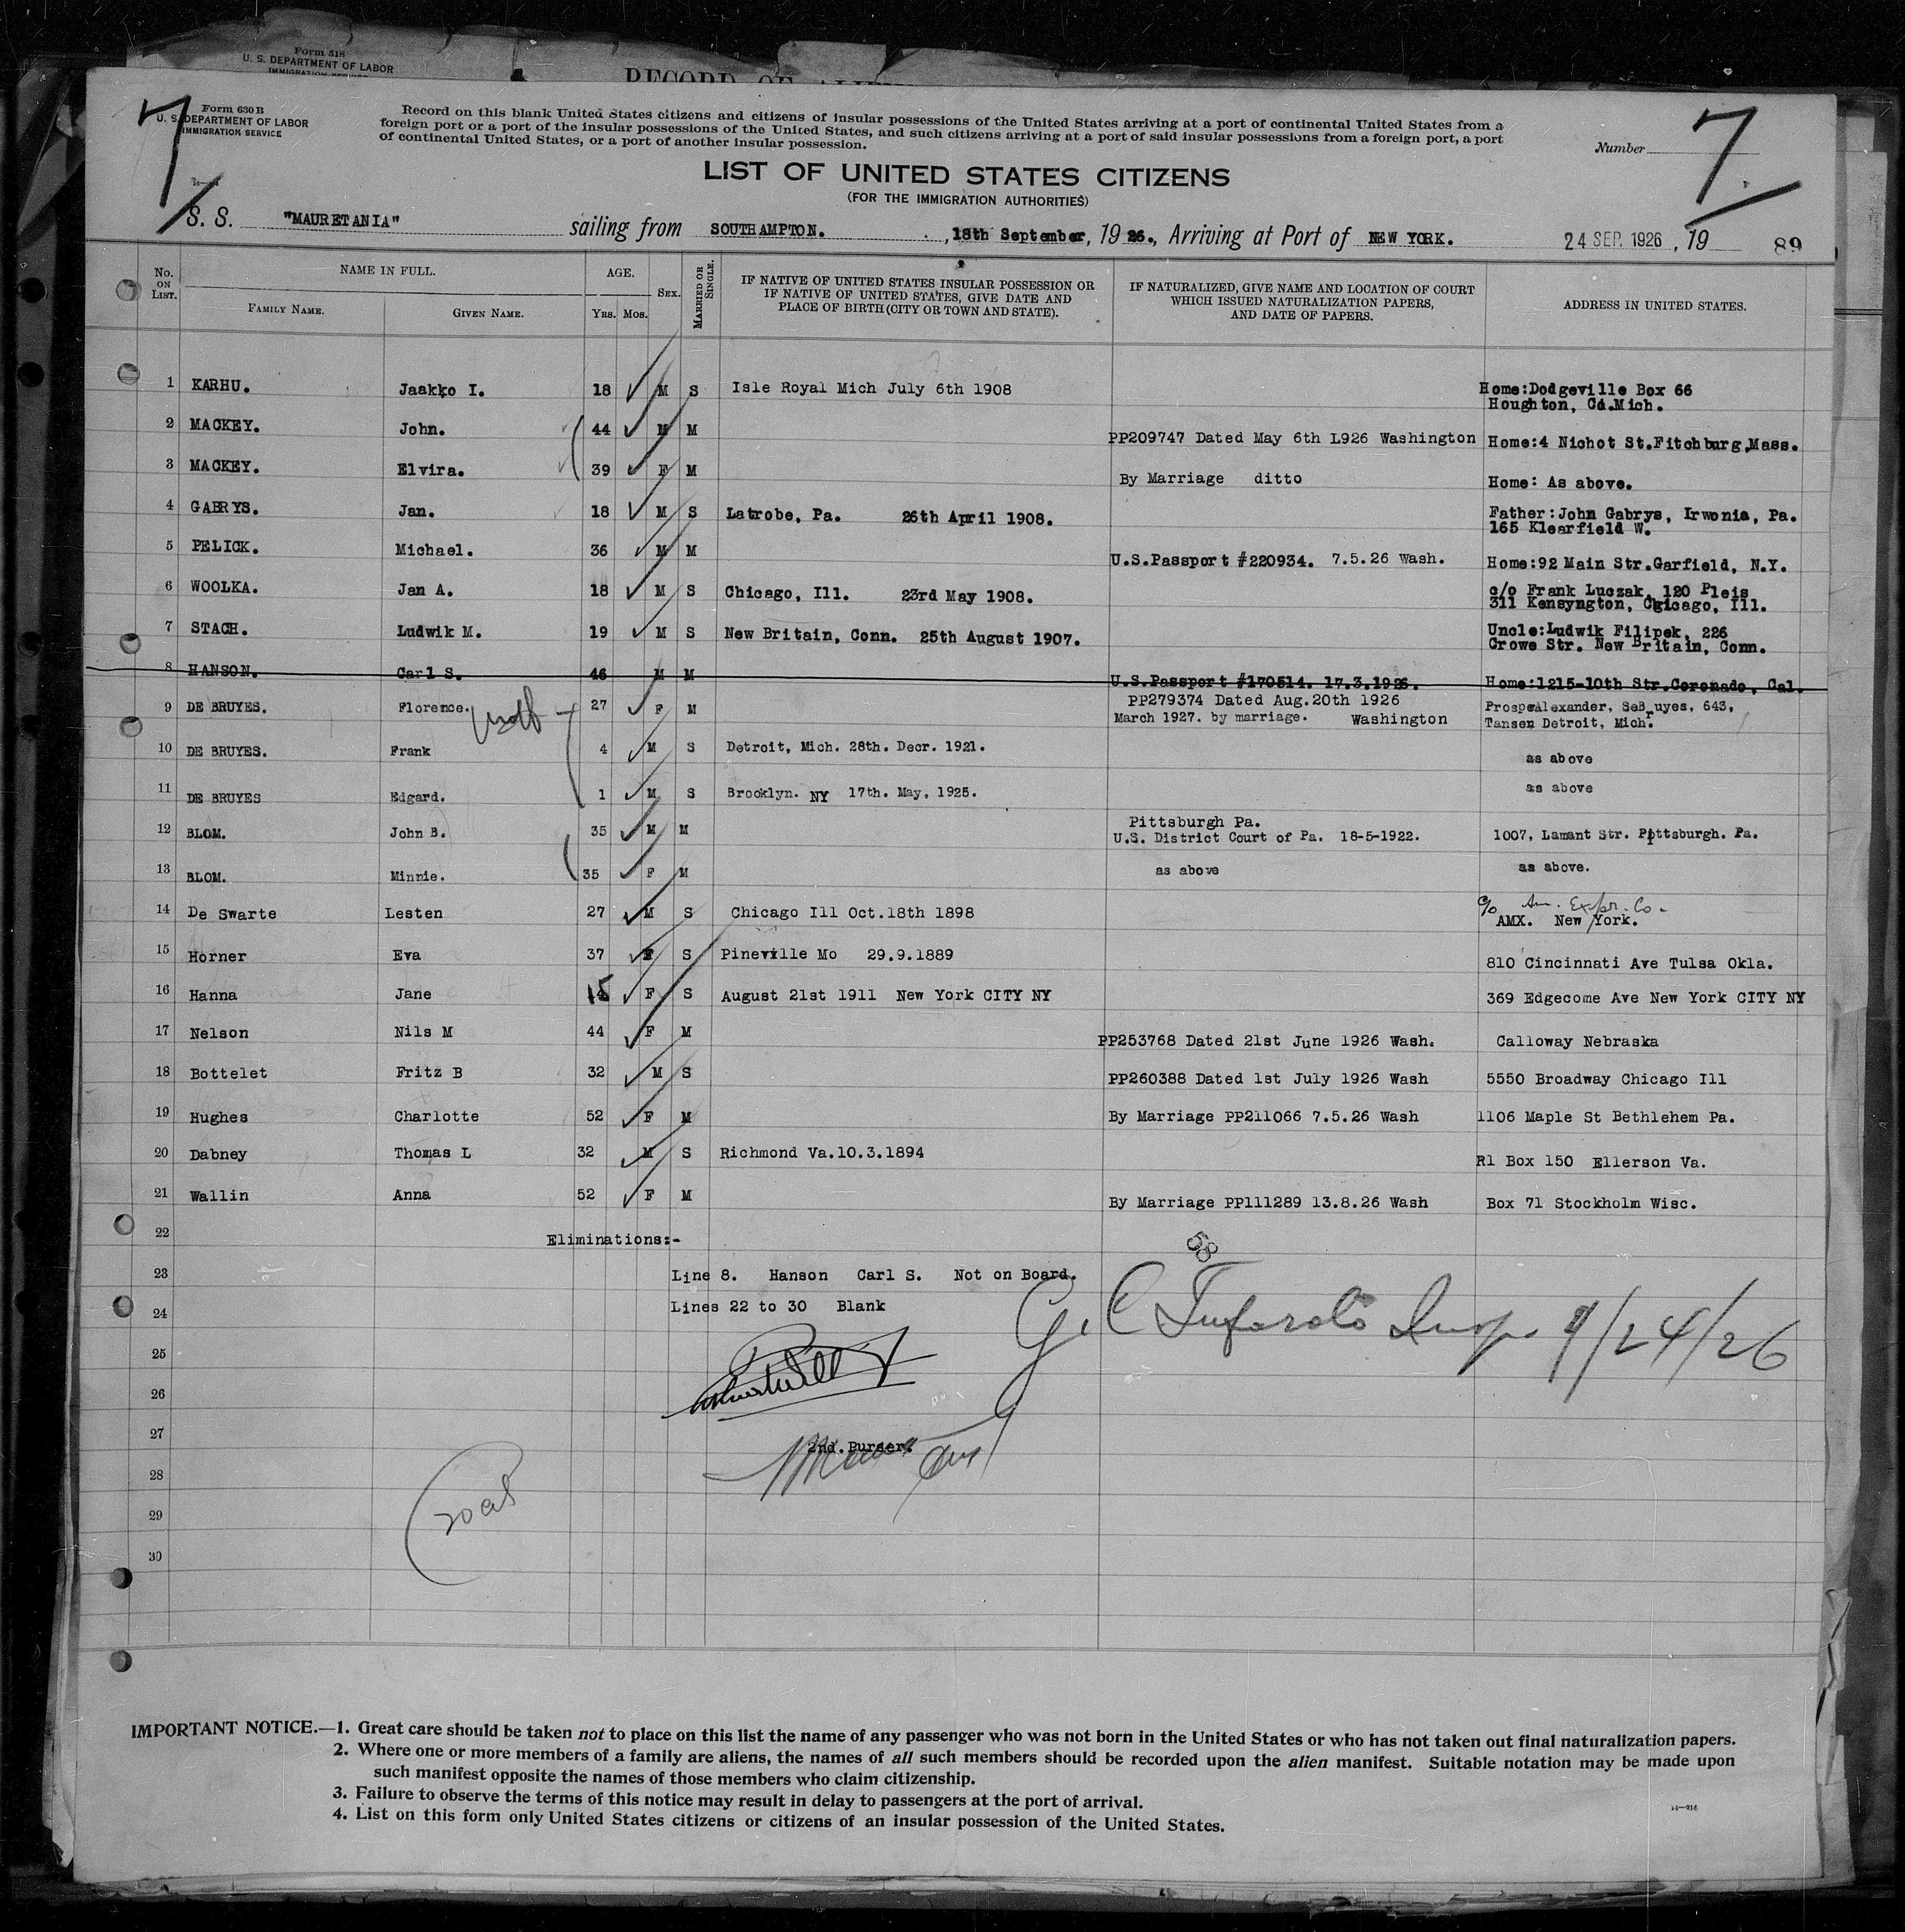 Form 518
U. S. DEPARTMENT OF LABOR
IMMIGRATION SERVICE
7
Form 630 B
U. S. DEPARTMENT OF LABOR
IMMIGRATION SERVICE
Record on this blank United States citizens and citizens of insular possessions of the United States arriving at a port of continental United States from a
foreign port or a port of the insular possessions of the United States, and such citizens arriving at a port of said insular possessions from a foreign port, a port
of continental United States, or a port of another insular possession.
Number 7
LIST OF UNITED STATES CITIZENS
(FOR THE IMMIGRATION AUTHORITIES)
S. S. "MAURETANIA" sailing from SOUTHAMPTON. , 18th September, 1926., Arriving at Port of NEW YORK. 24 SEP 1926 , 19 89
No. ON LIST. NAME IN FULL. FAMILY NAME. GIVEN NAME. AGE. YRS. MOS. SEX. MARRIED OR SINGLE. IF NATIVE OF UNITED STATES INSULAR POSSESSION OR IF NATIVE OF UNITED STATES, GIVE DATE AND PLACE OF BIRTH (CITY OR TOWN AND STATE). IF NATURALIZED, GIVE NAME AND LOCATION OF COURT WHICH ISSUED NATURALIZATION PAPERS, AND DATE OF PAPERS. ADDRESS IN UNITED STATES.
1 KARHU. Jaakko I. 18 M S Isle Royal Mich July 6th 1908 Home:Dodgeville Box 66
Houghton, Co.Mich.
2 MACKEY. John. 44 M M PP209747 Dated May 6th L926 Washington Home:4 Nichot St.Fitchburg,Mass.
3 MACKEY. Elvira. 39 F M By Marriage ditto Home: As above.
4 GABRYS. Jan. 18 M S Latrobe, Pa. 26th April 1908. Father:John Gabrys, Irwonia, Pa.
165 Klearfield W.
5 PELICK. Michael. 36 M M U.S.Passport #220934. 7.5.26 Wash. Home:92 Main Str.Garfield, N.Y.
6 WOOLKA. Jan A. 18 M S Chicago, Ill. 23rd May 1908. c/o Frank Luczak, 120 Pleis
311 Kensyngton, Chicago, Ill.
7 STACH. Ludwik M. 19 M S New Britain, Conn. 25th August 1907. Uncle:Ludwik Filipek, 226
Crowe Str. New Britain, Conn.
8 HANSON. Carl S. 46 M M U.S.Passport #170514. 17.3.1926. Home:1215-10th Str.Coronado, Cal.
9 DE BRUYES. Florence. 27 F M PP279374 Dated Aug.20th 1926
March 1927. by marriage. Washington
Prosper Alexander, SeBruyes, 643,
Tansen Detroit, Mich.
10 DE BRUYES. Frank 4 M S Detroit, Mich. 28th. Decr. 1921. as above
11 DE BRUYES Edgard. 1 M S Brooklyn. NY 17th. May, 1925. as above
12 BLOM. John B. 35 M M Pittsburgh Pa.
U.S. District Court of Pa. 18-5-1922. 1007, Lamant Str. Pittsburgh. Pa.
13 BLOM. Minnie. 35 F M as above as above.
14 De Swarte Lesten 27 M S Chicago Ill Oct.18th 1898 c/o Am. Expr. Co.
AMX. New York.
15 Horner Eva 37 F S Pineville Mo 29.9.1889 810 Cincinnati Ave Tulsa Okla.
16 Hanna Jane 15 F S August 21st 1911 New York CITY NY 369 Edgecome Ave New York CITY NY
17 Nelson Nils M 44 F M PP253768 Dated 21st June 1926 Wash. Calloway Nebraska
18 Bottelet Fritz B 32 M S PP260388 Dated 1st July 1926 Wash 5550 Broadway Chicago Ill
19 Hughes Charlotte 52 F M By Marriage PP211066 7.5.26 Wash 1106 Maple St Bethlehem Pa.
20 Dabney Thomas L 32 M S Richmond Va.10.3.1894 R1 Box 150 Ellerson Va.
21 Wallin Anna 52 F M By Marriage PP111289 13.8.26 Wash Box 71 Stockholm Wisc.
22 Eliminations:- 58
23 Line 8. Hanson Carl S. Not on Board.
24 Lines 22 to 30 Blank
9/24/26
25
26
27 2nd. Purser.
28
29
30
IMPORTANT NOTICE.—1. Great care should be taken not to place on this list the name of any passenger who was not born in the United States or who has not taken out final naturalization papers.
2. Where one or more members of a family are aliens, the names of all such members should be recorded upon the alien manifest. Suitable notation may be made upon
such manifest opposite the names of those members who claim citizenship.
3. Failure to observe the terms of this notice may result in delay to passengers at the port of arrival.
4. List on this form only United States citizens or citizens of an insular possession of the United States.